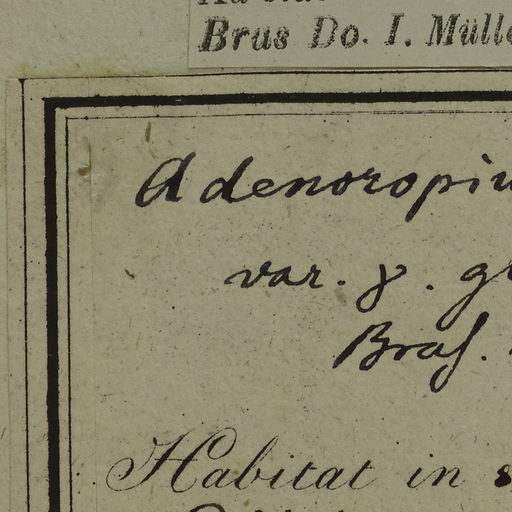 Brus Do. I. Mülle
Adenoropiu
var. γ. g
Bras.
Habitat in s